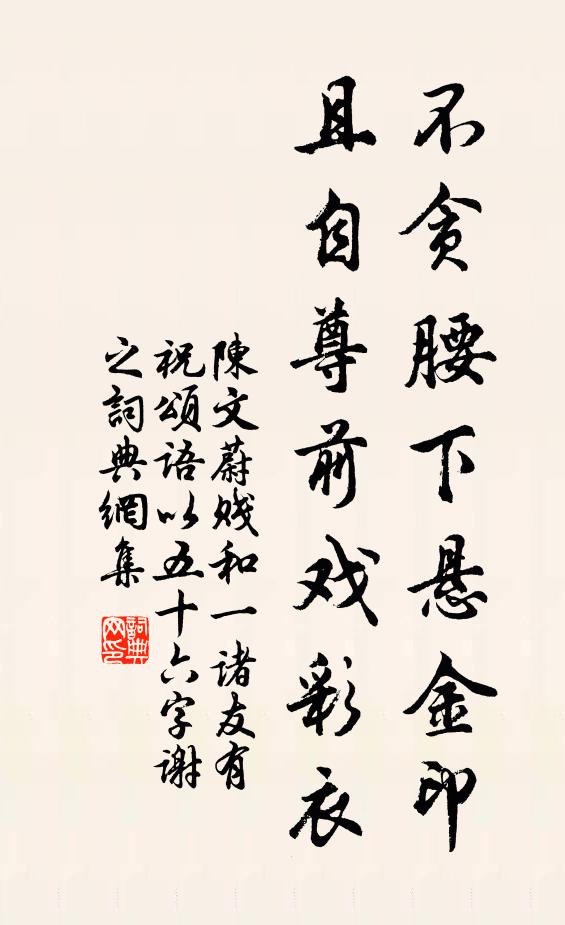 不贪腰下悬金印
且自尊前戏彩衣
陳文蔚賤和一諸友有
祝頌語以五十六字謝
之詞典網集
詞典
网印